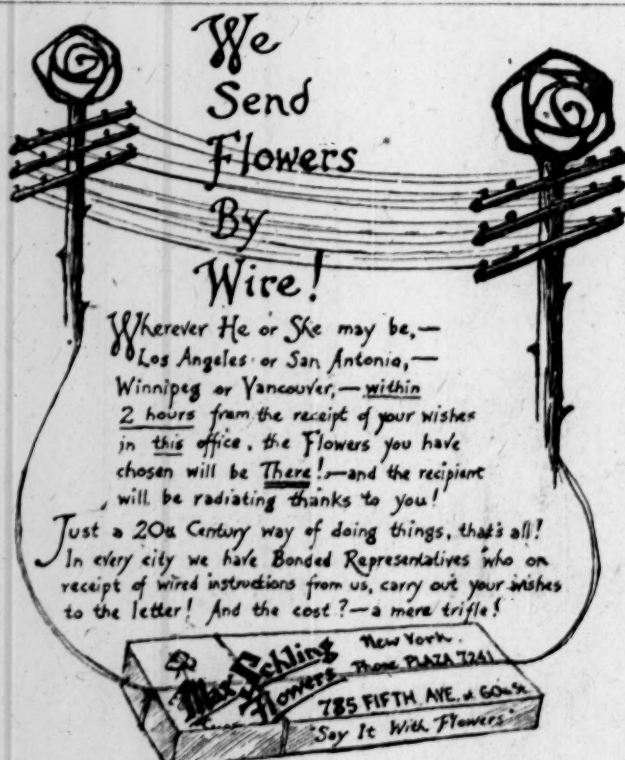 We
Send
Flowers
By
Wire!
Wherever He or She may be,—
Los Angeles or San Antonio,—
Winnipeg or Vancouver,— within
2 hours from the receipt of your wishes
in this office, the Flowers you have
chosen will be There!—and the recipient
will be radiating thanks to you!
Just a 20th Century way of doing things, that's all!
In every city we have Bonded Representatives who on
receipt of wired instructions from us, carry out your wishes
to the letter! And the cost?—a mere trifle!
Max Schling
Flowers
New York.
Phone PLAZA 7241
785 FIFTH AVE. at 60th St.
"Say It With Flowers"